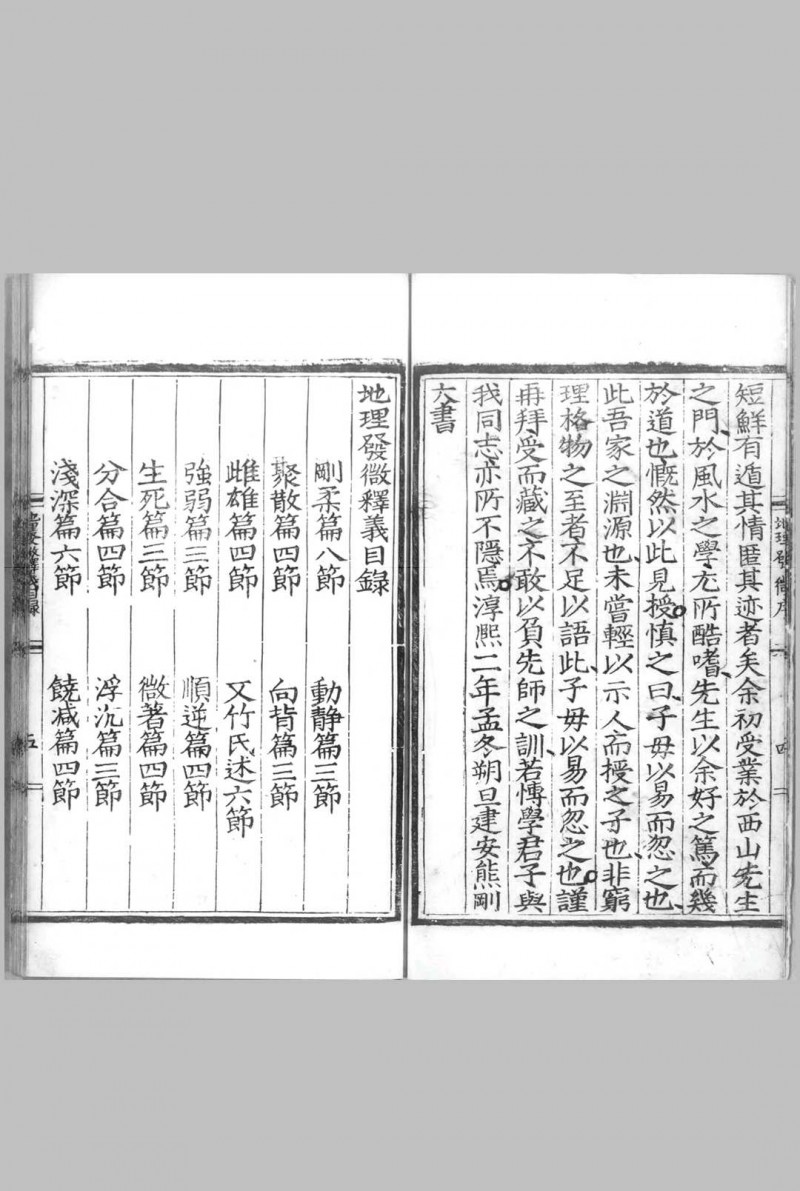 短鮮有遁其情匿其迹者矣余初受業於西山先生
之門於風水之學尤所酷嗜先生以余好之篤而幾
於道也慨然以此見授慎之曰子毋以易而忽之也
此吾家之淵源也未嘗輕以示人而授之子也非窮
理格物之至者不足以語此子毋以易而忽之也謹
再拜受而藏之不敢以負先師之訓若博學君子與
我同志亦所不隱焉淳熙二年孟冬朔旦建安熊剛
大書
地理發微序
四
地理發微釋義目錄
剛柔篇八節 動靜篇三節
聚散篇四節 向背篇三節
雌雄篇四節 又竹氏述六節
強弱篇三節 順逆篇四節
生死篇三節 微著篇四節
分合篇四節 浮沉篇三節
淺深篇六節 饒减篇四節
五